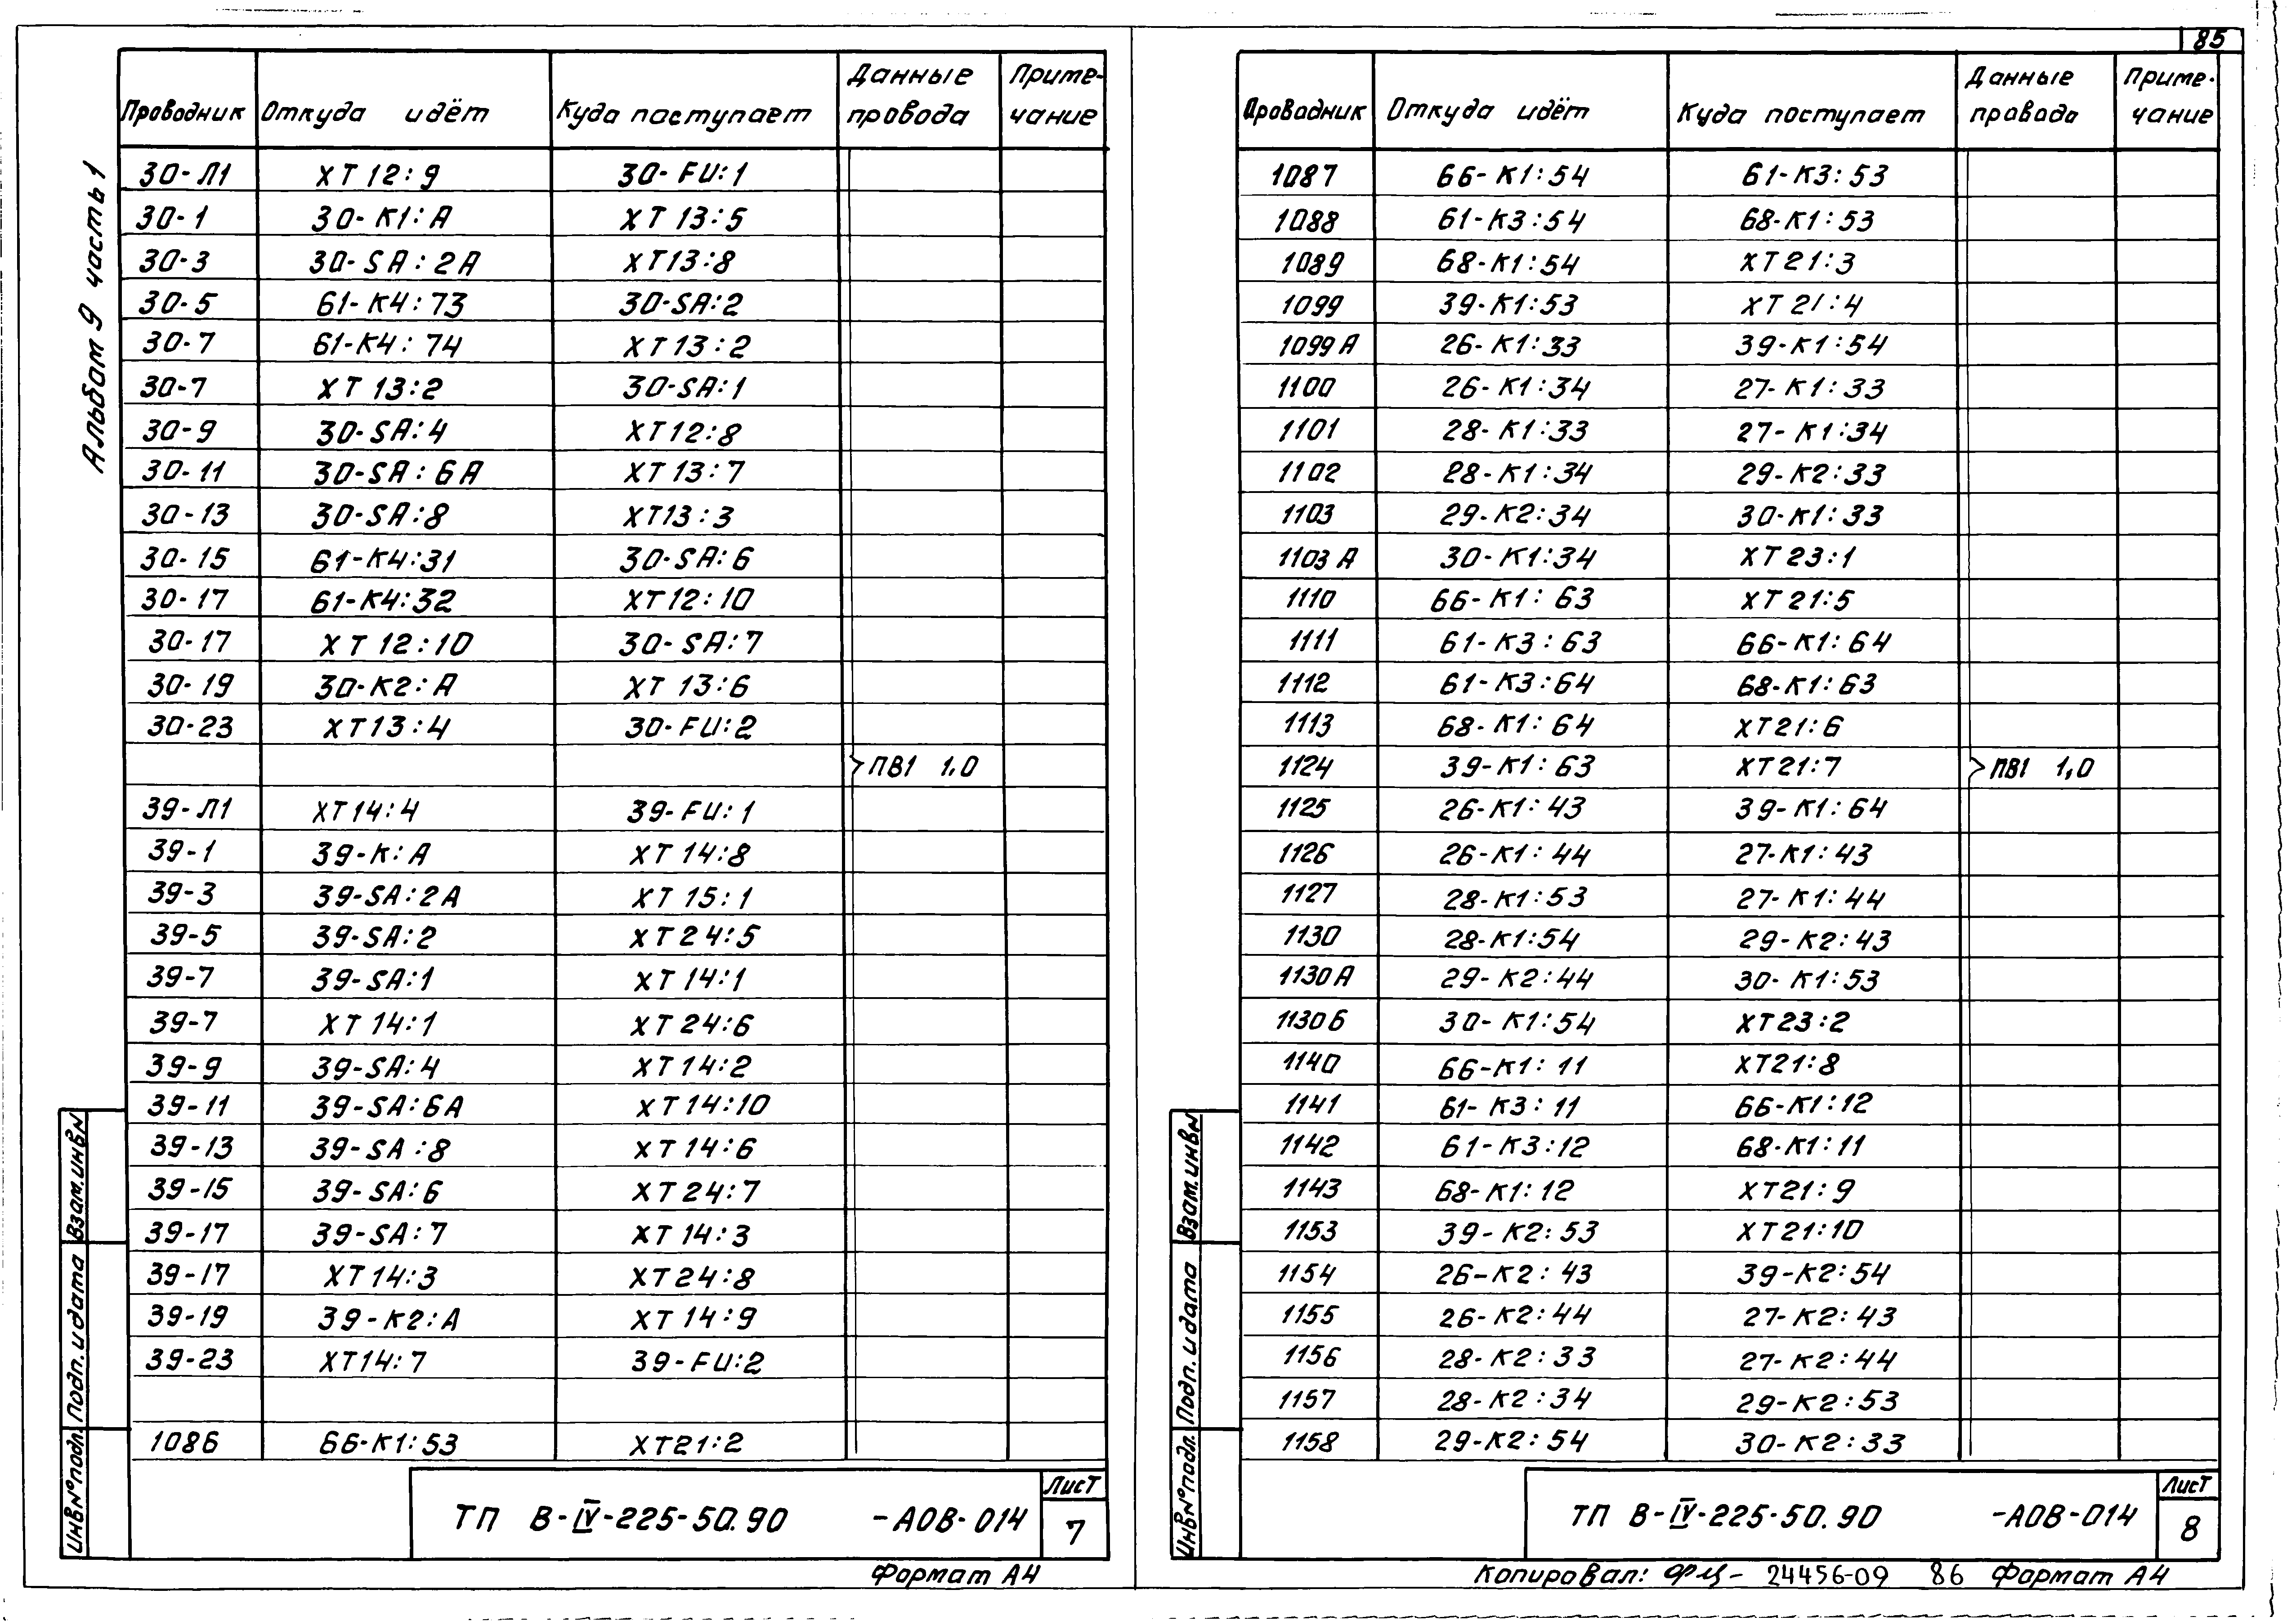 85
Альбом 9 часть 1
Проводник Откуда идёт Куда поступает Данные провода Приме-чание
30-Л1 XT12:9 30-FU:1
30-1 30-K1:A XT13:5
30-3 30-SA:2A XT13:8
30-5 61-K4:73 30-SA:2
30-7 61-K4:74 XT13:2
30-7 XT13:2 30-SA:1
30-9 30-SA:4 XT12:8
30-11 30-SA:6A XT13:7
30-13 30-SA:8 XT13:3
30-15 61-K4:31 30-SA:6
30-17 61-K4:32 XT12:10
30-17 XT12:10 30-SA:7
30-19 30-K2:A XT13:6
30-23 XT13:4 30-FU:2
ПВ1 1,0
39-Л1 XT14:4 39-FU:1
39-1 39-K:A XT14:8
39-3 39-SA:2A XT15:1
39-5 39-SA:2 XT24:5
39-7 39-SA:1 XT14:1
39-7 XT14:1 XT24:6
39-9 39-SA:4 XT14:2
39-11 39-SA:6A XT14:10
39-13 39-SA:8 XT14:6
39-15 39-SA:6 XT24:7
39-17 39-SA:7 XT14:3
39-17 XT14:3 XT24:8
39-19 39-K2:A XT14:9
39-23 XT14:7 39-FU:2
1086 66-K1:53 XT21:2
Инв№подл. Подп. и дата Взам.инв№
ТП В-IV-225-50.90 -АОВ-014
Лист
7
Формат А4
Проводник Откуда идёт Куда поступает Данные провода Приме-чание
1087 66-K1:54 61-K3:53
1088 61-K3:54 68-K1:53
1089 68-K1:54 XT21:3
1099 39-K1:53 XT21:4
1099А 26-K1:33 39-K1:54
1100 26-K1:34 27-K1:33
1101 28-K1:33 27-K1:34
1102 28-K1:34 29-K2:33
1103 29-K2:34 30-K1:33
1103А 30-K1:34 XT23:1
1110 66-K1:63 XT21:5
1111 61-K3:63 66-K1:64
1112 61-K3:64 68-K1:63
1113 68-K1:64 XT21:6
1124 39-K1:63 XT21:7 ПВ1 1,0
1125 26-K1:43 39-K1:64
1126 26-K1:44 27-K1:43
1127 28-K1:53 27-K1:44
1130 28-K1:54 29-K2:43
1130А 29-K2:44 30-K1:53
1130Б 30-K1:54 XT23:2
1140 66-K1:11 XT21:8
1141 61-K3:11 66-K1:12
1142 61-K3:12 68-K1:11
1143 68-K1:12 XT21:9
1153 39-K2:53 XT21:10
1154 26-K2:43 39-K2:54
1155 26-K2:44 27-K2:43
1156 28-K2:33 27-K2:44
1157 28-K2:34 29-K2:53
1158 29-K2:54 30-K2:33
Инв№подл. Подп. и дата Взам.инв№
ТП В-IV-225-50.90 -АОВ-014
Лист
8
Копировал: 24456-09 86 Формат А4